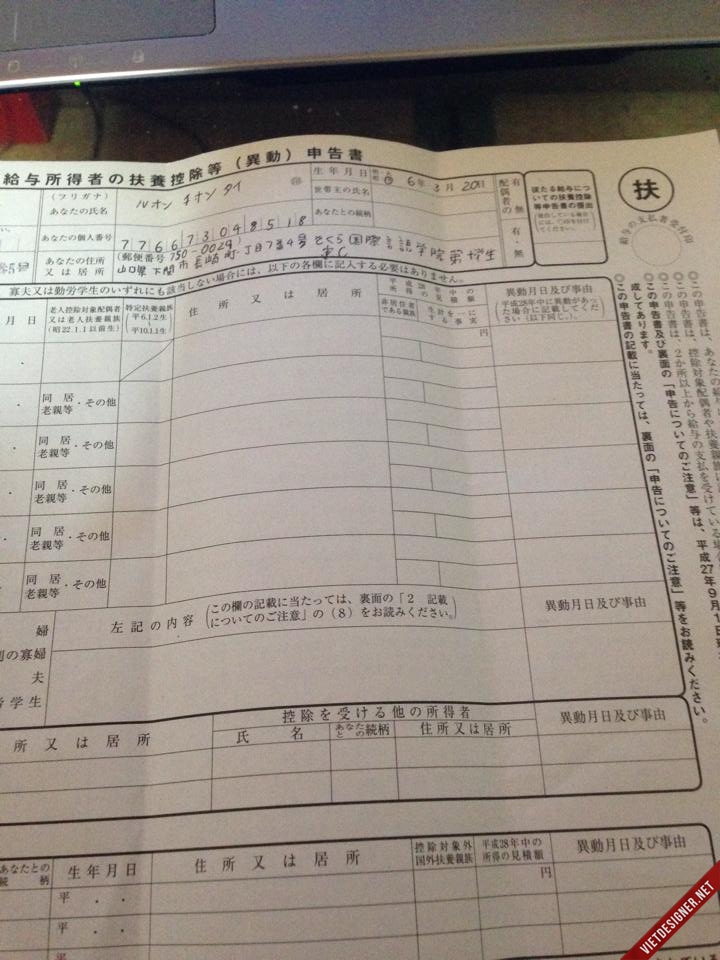 給与所得者の扶養控除等（異動）申告書
（フリガナ）
あなたの氏名
ルオン チオン タイ
生年月日
6年 3月 20日
世帯主の氏名
あなたとの続柄
配偶者の有無
有・無
従たる給与についての扶養控除等申告書の提出
扶
給与の支払者受付印
あなたの個人番号
776673048518
あなたの住所又は居所
（郵便番号 750-0029）
山口県下関市長崎町
さくら国際言語学院
寡夫又は勤労学生のいずれにも該当しない場合には、以下の各欄に記入する必要はありません。
月 日
老人控除対象配偶者又は老人扶養親族（昭22.1.1以前生）
特定扶養親族（平6.1.2生～平10.1.1生）
住所又は居所
非居住者である親族
生計を一にする事実
平成28年中の所得の見積額
異動月日及び事由
平成28年中に異動があった場合に記載してください（以下同じ。）。
円
同居老親等・その他
同居老親等・その他
同居老親等・その他
同居老親等・その他
同居老親等・その他
婦
別の寡婦
夫
学生
左記の内容
（この欄の記載に当たっては、裏面の「2 記載についてのご注意」の（8）をお読みください。）
異動月日及び事由
所又は居所
控除を受ける他の所得者
氏名
あなたとの続柄
住所又は居所
異動月日及び事由
あなたとの続柄
生年月日
住所又は居所
控除対象外国外扶養親族
平成28年中の所得の見積額
異動月日及び事由
平 ・ ・
円
平 ・ ・
平
◎この申告書の記載に当たっては、裏面の「申告についてのご注意」等をお読みください。
成してあります。
◎この申告書及び裏面の「申告についてのご注意」等は、平成27年9月1日現
◎この申告書は、2か所以上から給与の支払を受けている場
◎この申告書は、控除対象配偶者や扶養親族に
VIETDESIGNER.NET